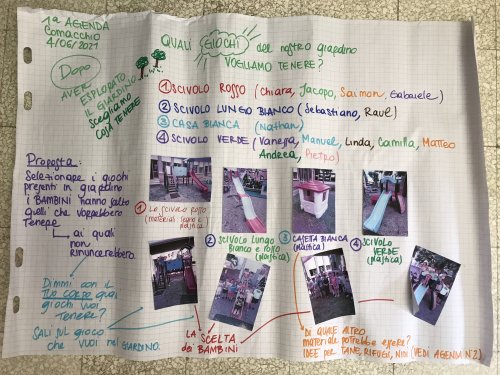 1ª AGENDA
COMACCHIO
4/06/2021
DOPO
AVER
ESPLORATO
IL GIARDINO
scegliamo
COSA TENERE
QUALI GIOCHI del nostro giardino
VOGLIAMO TENERE?
① SCIVOLO ROSSO (Chiara, Jacopo, Saimon, Gabriele)
② SCIVOLO LUNGO BIANCO (Sebastiano, Raul)
③ CASA BIANCA (Nathan)
④ SCIVOLO VERDE (Vanessa, Manuel, Linda, Camilla, Matteo
Andrea, Pietro)
Proposta:
Selezionare i giochi
presenti in giardino
i BAMBINI hanno fatto
quelli che vorrebbero
Tenere
ai quali
non
rinuncerebbero.
Dimmi con il
tuo corpo quali
giochi vuoi
Tenere?
Sali sul gioco
che vuoi nel GIARDINO.
① LO SCIVOLO ROSSO
(materiali: legno e
plastica)
② SCIVOLO LUNGO
Bianco e rosso
(plastica)
③ CASETTA BIANCA
(plastica)
④ SCIVOLO
VERDE
(plastica)
LA SCELTA
dei BAMBINI
DI QUALE ALTRO
materiale potrebbe essere?
IDEE PER TANE, RIFUGI, NIDI (VEDI AGENDA N°2)